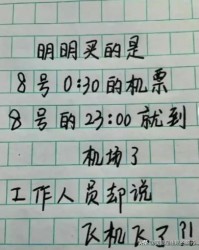 明明买的是
8号0:30的机票
8号的23:00就到
机场了
工作人员却说
飞机飞了?!